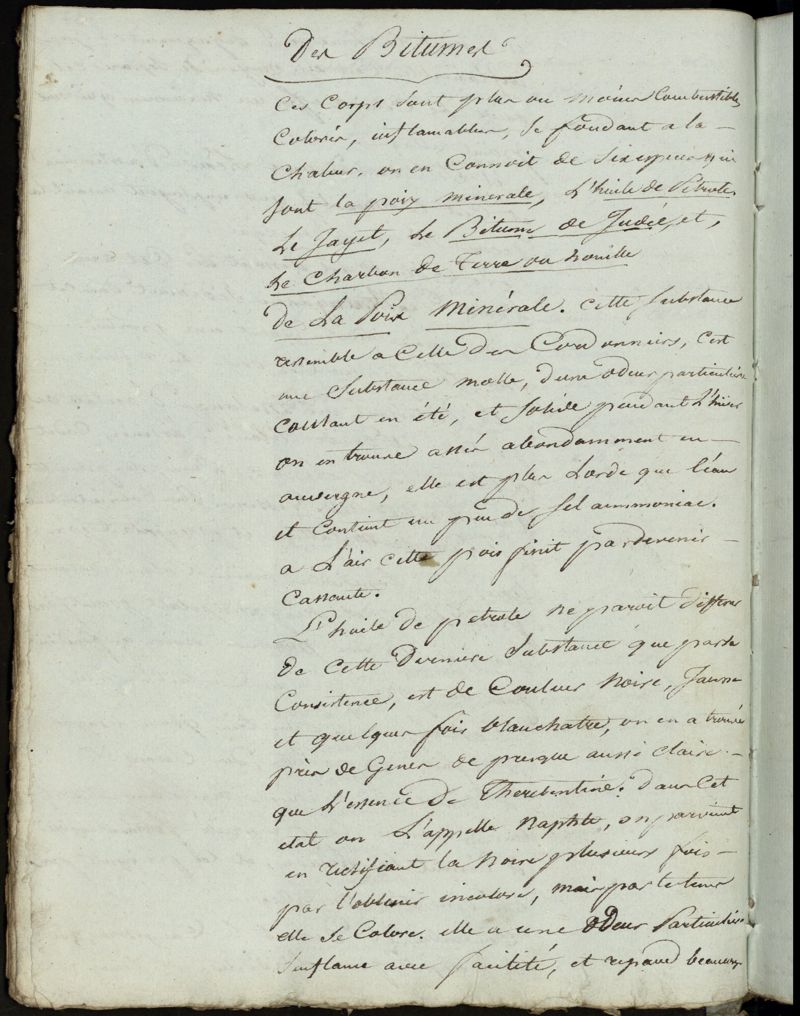 Des Bitumes
Ces Corps sont plus ou moins Combustibles
Colorés, inflamables, se fondant a la –
Chaleur. on en Connoit de six especes qui
sont la poix minerale, L'huile de Pétrole,
Le Jayet, Le Bitume de Judée, et,
Le Charbon de Terre ou houille
de La Poix Minérale. Cette substance
ressemble a Celle des Cordonniers, C'est
une substance molle, d'une odeur particulière
Coulant en été, et solide pendant L'hiver
on en trouve assés abondamment en –
auvergne, elle est plus Lorde que l'eau
et Contient un peu de sel ammoniac.
a L'air cette pois finit par devenir –
Cassante.
L'huile de petrole ne paroit differer
de Cette Derniere substance que par sa
Consistence, est de Couleur Noire, Jaune
et quelques fois blanchatre, on en a trouvée
près de Genes de presque aussi claire –
que L'essence de Therebentine. Dans Cet
etat on L'appelle Naphte, on parvient
en rectifiant la Noire plusieurs fois –
par l'obtenir incolore, mais par le tems
elle se Colore. elle a une odeur Particulière
s'enflame avec facilité, et repand beaucoup